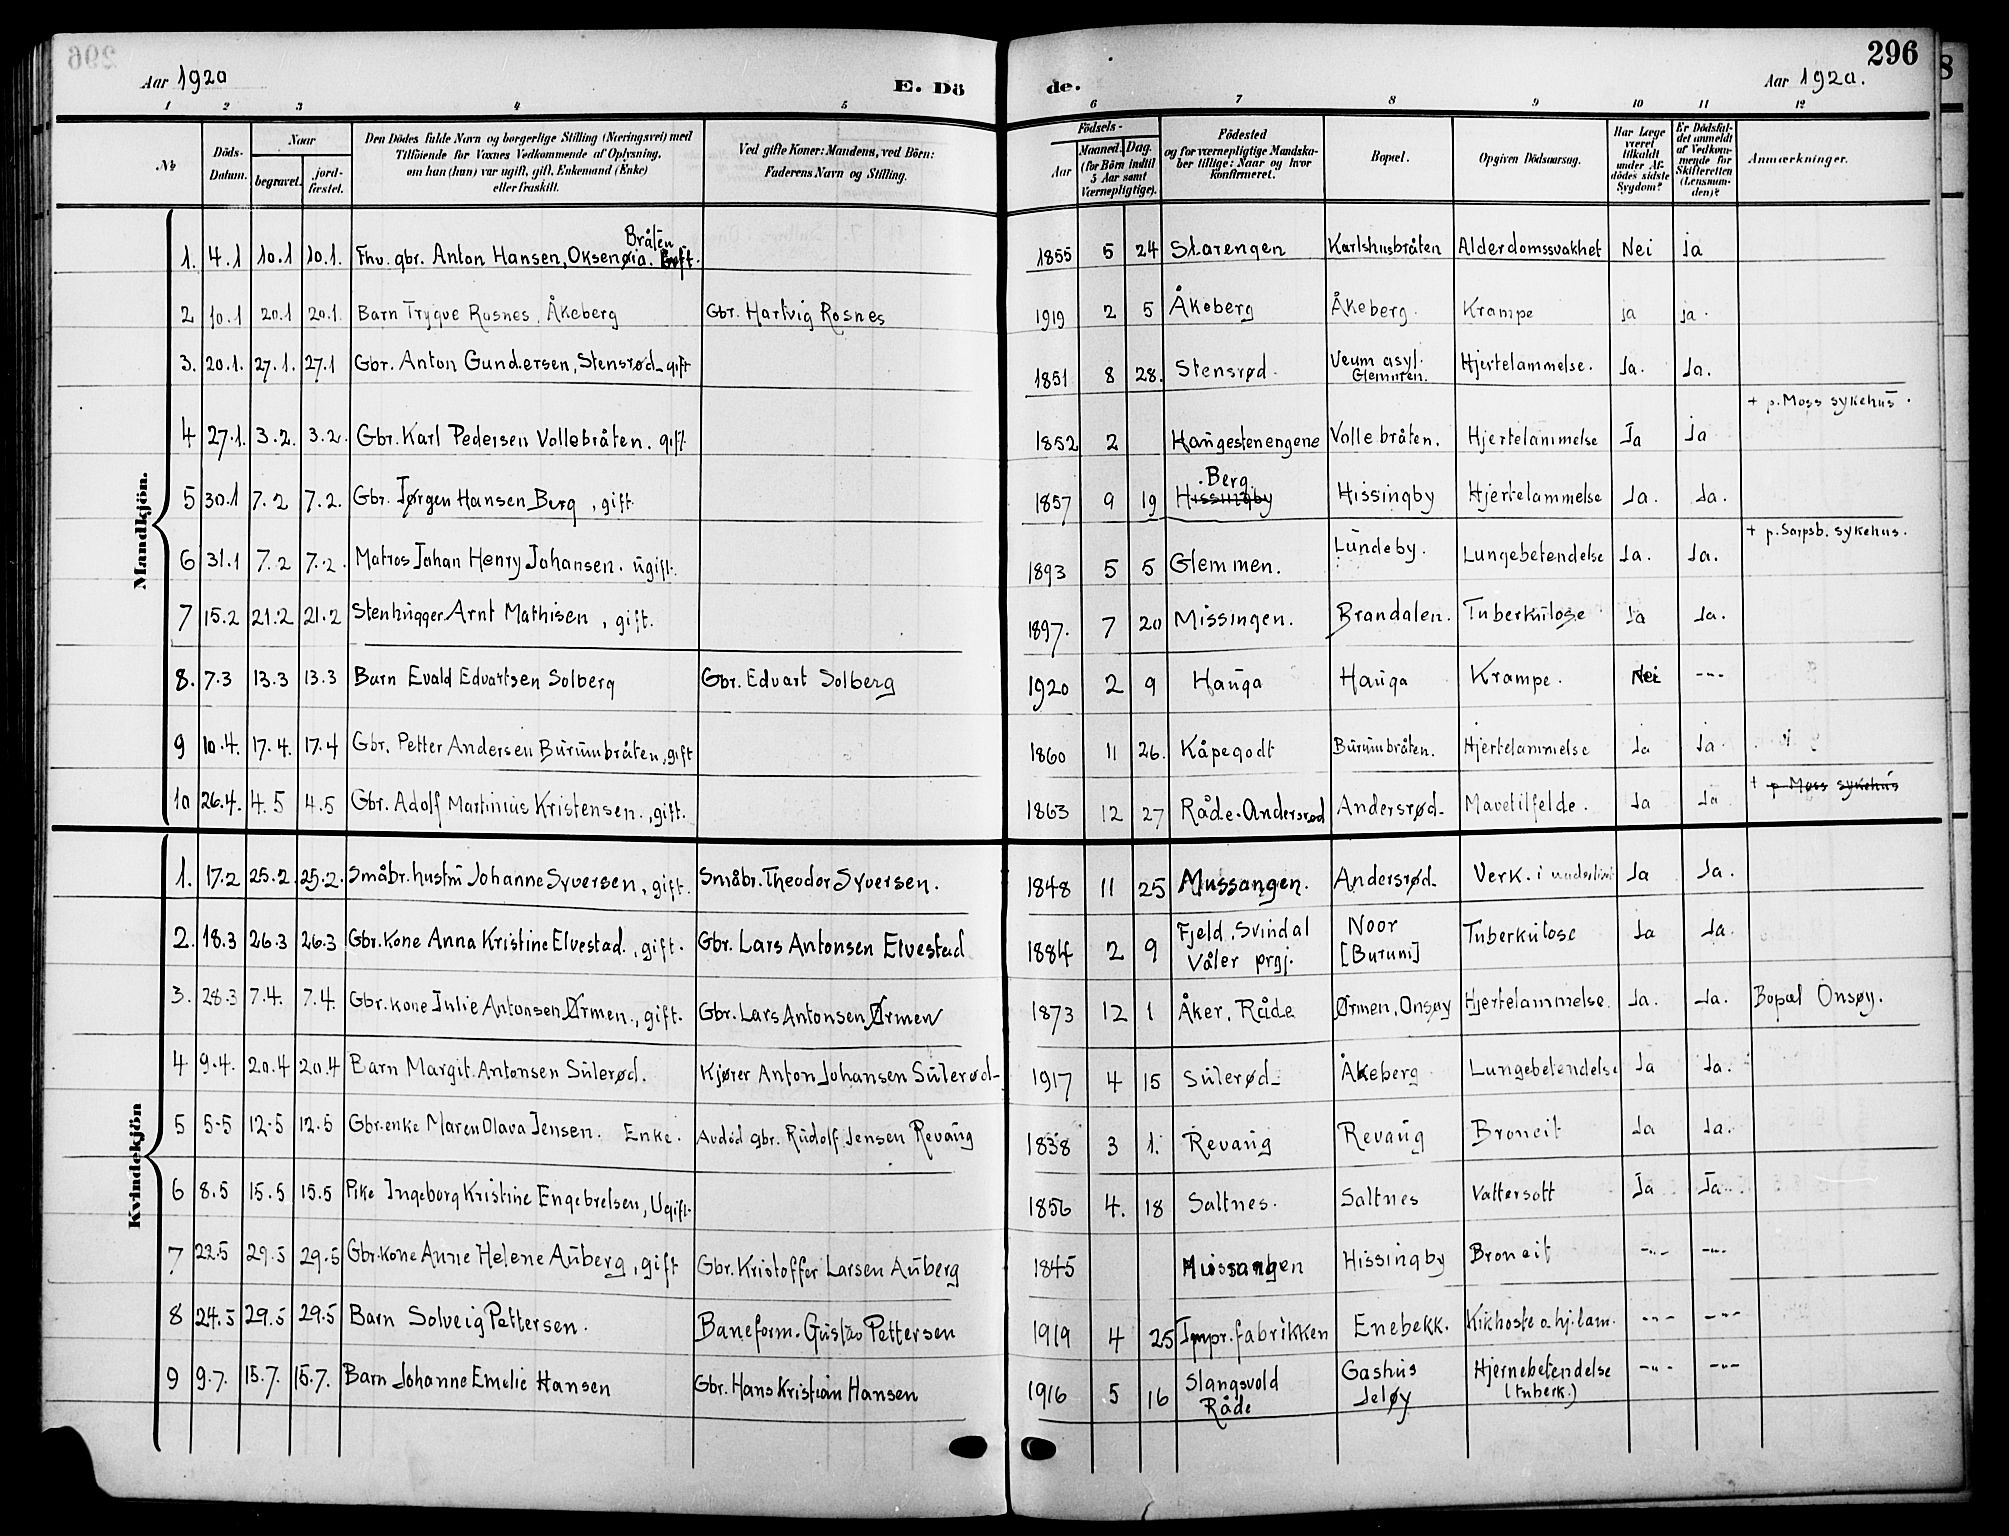 296
Aar 1920 E. Dö de. Aar 1920.
1 2 3 4 5 6 7 8 9 10 11 12
№ Döds-Datum. Naar begravet. jord-fæstet. Den Dödes fulde Navn og borgerlige Stilling (Næringsvei) med Tilföiende for Voxnes Vedkommende af Oplysning, om han (hun) var ugift, gift, Enkemand (Enke) eller fraskilt. Ved gifte Koner: Mandens, ved Börn: Faderens Navn og Stilling. Födsels- Aar Maaned. Dag. (for Börn indtil 5 Aar samt Værnepligtige). Födested og for værnepligtige Mandskaber tillige: Naar og hvor konfirmeret. Bopæl. Opgiven Dödsaarsag. Har Læge været tilkaldt under Afdödes sidste Sygdom? Er Dödsfaldet anmeldt af Vedkommende for Skifteretten (Lensmanden)? Anmærkninger.
Mandkjön.
1. 4.1 10.1 10.1. Fhv. gbr. Anton Hansen, Oksenøia. Bråten 1855 5 24 Starengen Karlshusbråten Alderdomssvakhet Nei ja
2 10.1 20.1 20.1. Barn Trygve Rosnes, Åkeberg Gbr. Hartvig Rosnes 1919 2 5 Åkeberg Åkeberg. Krampe ja ja.
3. 20.1. 27.1. 27.1 Gbr. Anton Gundersen, Stensrød gift 1851 8 28. Stensrød. Veum asyl. Glemmen. Hjertelammelse. Ja. Ja.
4 27.1. 3.2. 3.2. Gbr. Karl Pedersen Vollebråten. gift. 1852 2 Haugestenengene Vollebråten. Hjertelammelse Ja Ja + p. Moss sykehus.
5 30.1 7.2 7.2. Gbr. Jørgen Hansen Berg, gift. 1857 9 19 Hissingby Berg Hissingby Hjertelammelse Ja. Ja.
6 31.1 7.2 7.2. Matros Johan Henry Johansen. ugift. 1893 5 5 Glemmen. Lundeby. Lungebetendelse Ja. Ja. + p. Sarpsb. sykehus.
7 15.2 21.2 21.2 Stenhugger Arnt Mathisen, gift. 1897. 7 20 Missingen. Brandalen. Tuberkulose Ja Ja.
8. 7.3 13.3 13.3 Barn Evald Edvartsen Solberg Gbr. Edvart Solberg 1920 2 9 Hauga Hauga Krampe. Nei -"-
9 10.4. 17.4. 17.4 Gbr. Petter Andersen Burumbråten, gift 1860 11 26. Kåpegodt Burumbråten. Hjertelammelse Ja Ja.
10 26.4. 4.5 4.5 Gbr. Adolf Martinius Kristensen., gift. 1863 12 27 Råde. Andersrød Andersrød Mavetilfelde. Ja Ja + p. Moss sykehus
Kvindekjön
1. 17.2 25.2. 25.2. Småbr. hustru Johanne Syversen, gift. Småbr. Theodor Syversen. 1848 11 25 Mussangen. Andersrød Verk. i underlivet Ja Ja.
2. 18.3 26.3 26.3 Gbr. kone Anna Kristine Elvestad., gift. Gbr. Lars Antonsen Elvestad 1884 2 9 Fjeld, Svindal Våler prgj. Noor [Burum] Tuberkulose Ja Ja.
3. 28.3 7.4. 7.4. Gbr. kone Julie Antonsen Ørmen., gift. Gbr. Lars Antonsen Ørmen 1873 12 1 Åker, Råde Ørmen, Onsøy Hjertelammelse. Ja. Ja. Bopæl Onsøy.
4 9.4. 20.4 20.4 Barn Margit Antonsen Sulerød. Kjører Anton Johansen Sulerød 1917 4 15 Sulerød Åkeberg Lungebetendelse Ja Ja.
5 5-5 12-5 12.5 Gbr. enke Maren Olava Jensen. Enke. Avdød gbr. Rudolf Jensen Revaug 1838 3 1. Revaug Revaug Broncit Ja Ja.
6 8.5 15.5 15.5 Pike Ingeborg Kristine Engebretsen, Ugift. 1856 4. 18 Saltnes. Saltnes Vattersott Ja Ja
7 22.5 29.5 29.5 Gbr. kone Anne Helene Auberg, gift Gbr. Kristoffer Larsen Auberg 1845 Mussangen Hissingby Broncit -"- -"-
8 24.5 29.5 29.5 Barn Solveig Pettersen. Baneform. Gustav Pettersen 1919 4 25 Impr. fabrikken Enebekk. Kikhoste o. hj. lam. -"- -"-
9 9.7. 15.7. 15.7. Barn Johanne Emelie Hansen Gbr. Hans Kristian Hansen 1916 5 16 Slangsvold Råde Gashus Jeløy Hjernebetendelse (tuberk.) -"- -"-